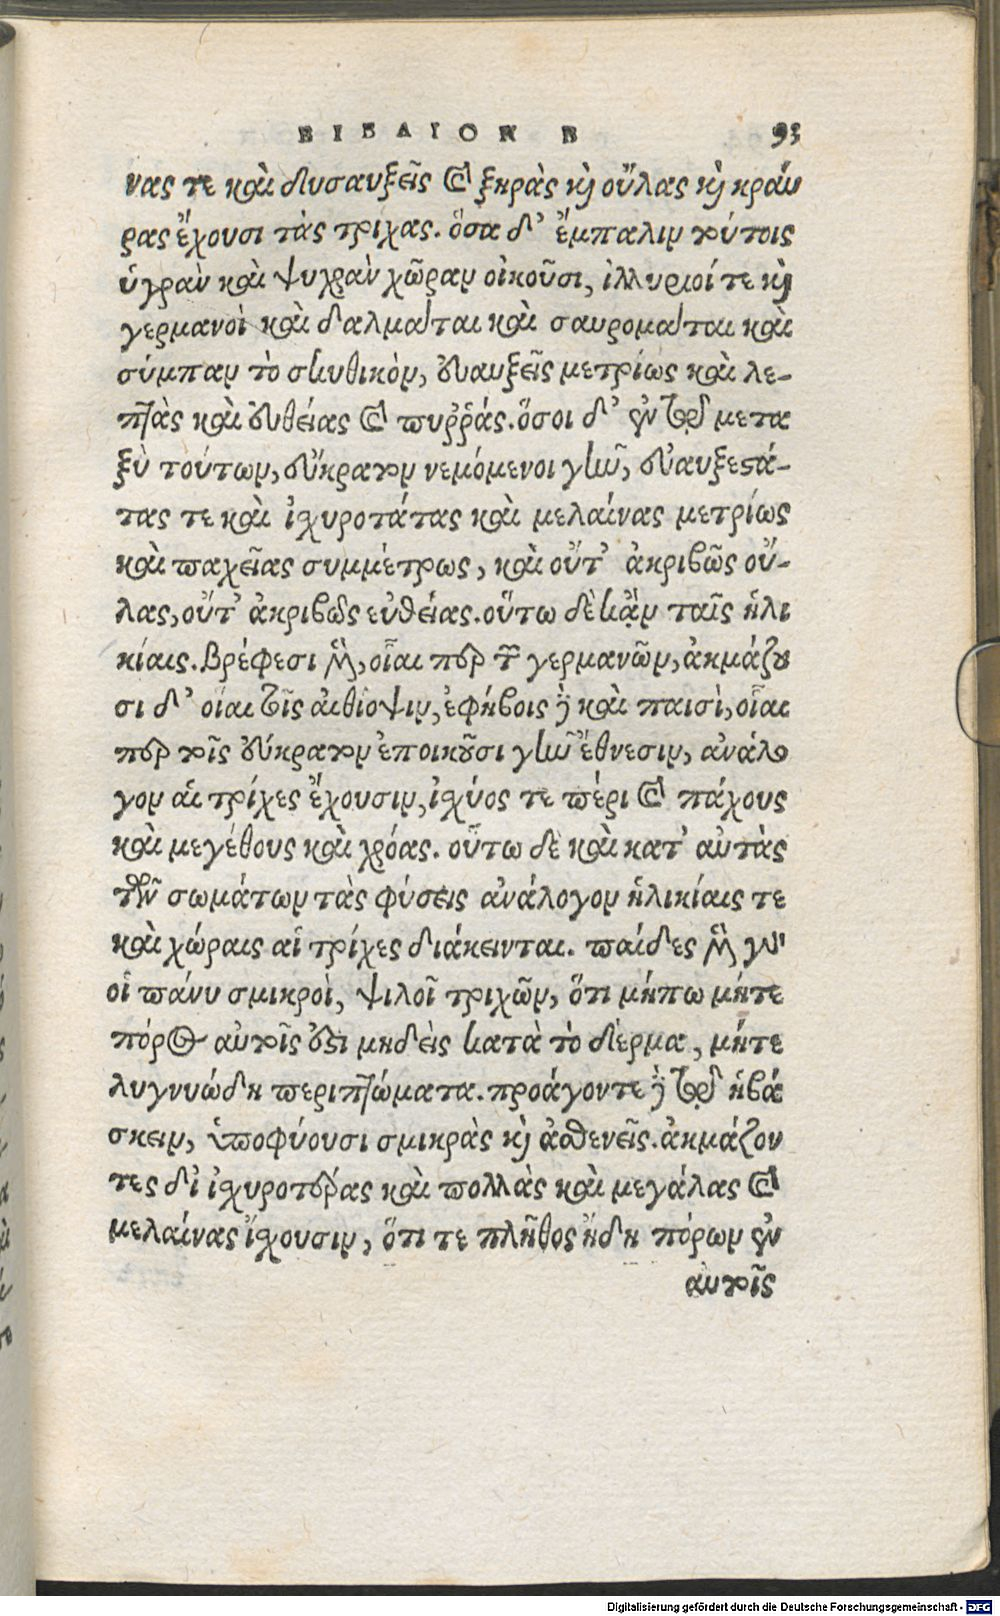 ΒΙΒΛΙΟΝ Β 93
νας τε καὶ δυσαυξεῖς καὶ ξηρὰς καὶ οὔλας καὶ κραύ
ρας ἔχουσι τὰς τρίχας. ὅσα δ' ἔμπαλιν τούτοις
ὑγρὰν καὶ ψυχρὰν χῶραν οἰκοῦσι, ἰλλυριοί τε καὶ
γερμανοὶ καὶ δαλμάται καὶ σαυρομάται καὶ
σύμπαν τὸ σκυθικὸν, εὐαυξεῖς μετρίως καὶ λε-
πτὰς καὶ εὐθείας καὶ πυῤῥάς. ὅσοι δ' ἐν τῷ μετα
ξὺ τούτων, εὔκρατον νεμόμενοι γῆν, εὐαυξεστά-
τας τε καὶ ἰσχυροτάτας καὶ μελαίνας μετρίως
καὶ παχείας συμμέτρως, καὶ οὔτ' ἀκριβῶς οὔ-
λας, οὔτ' ἀκριβῶς εὐθείας. οὕτω δὲ κἀν ταῖς ἡλι
κίαις. βρέφεσι μὲν, οἷαι περ τῶν γερμανῶν, ἀκμάζου
σι δ' οἷαι τοῖς αἰθίοψιν, ἐφήβοις δὲ καὶ παισὶ, οἷαι
περ τοῖς εὔκρατον ἐποικοῦσι γῆν ἔθνεσιν, ἀνάλο
γον αἱ τρίχες ἔχουσιν, ἰσχύος τε πέρι καὶ πάχους
καὶ μεγέθους καὶ χρόας. οὕτω δὲ καὶ κατ' αὐτὰς
τῶν σωμάτων τὰς φύσεις ἀνάλογον ἡλικίαις τε
καὶ χώραις αἱ τρίχες διάκεινται. παίδες μὲν γὰρ
οἱ πάνυ σμικροὶ, ψιλοῖ τριχῶν, ὅτι μήπω μήτε
πόρος αὐτοῖς ἐστι μηδεὶς κατὰ τὸ δέρμα, μήτε
λυγνυώδη περιπτώματα. προάγοντε δὲ τῷ ἡβά
σκειν, ὑποφύουσι σμικρὰς καὶ ἀσθενεῖς. ἀκμάζον
τες δὲ ἰσχυροτέρας καὶ πολλὰς καὶ μεγάλας καὶ
μελαίνας ἴχουσιν, ὅτι τε πλῆθος ἤδη πόρων ἐν
αὐτοῖς
Digitalisierung gefördert durch die Deutsche Forschungsgemeinschaft - DFG